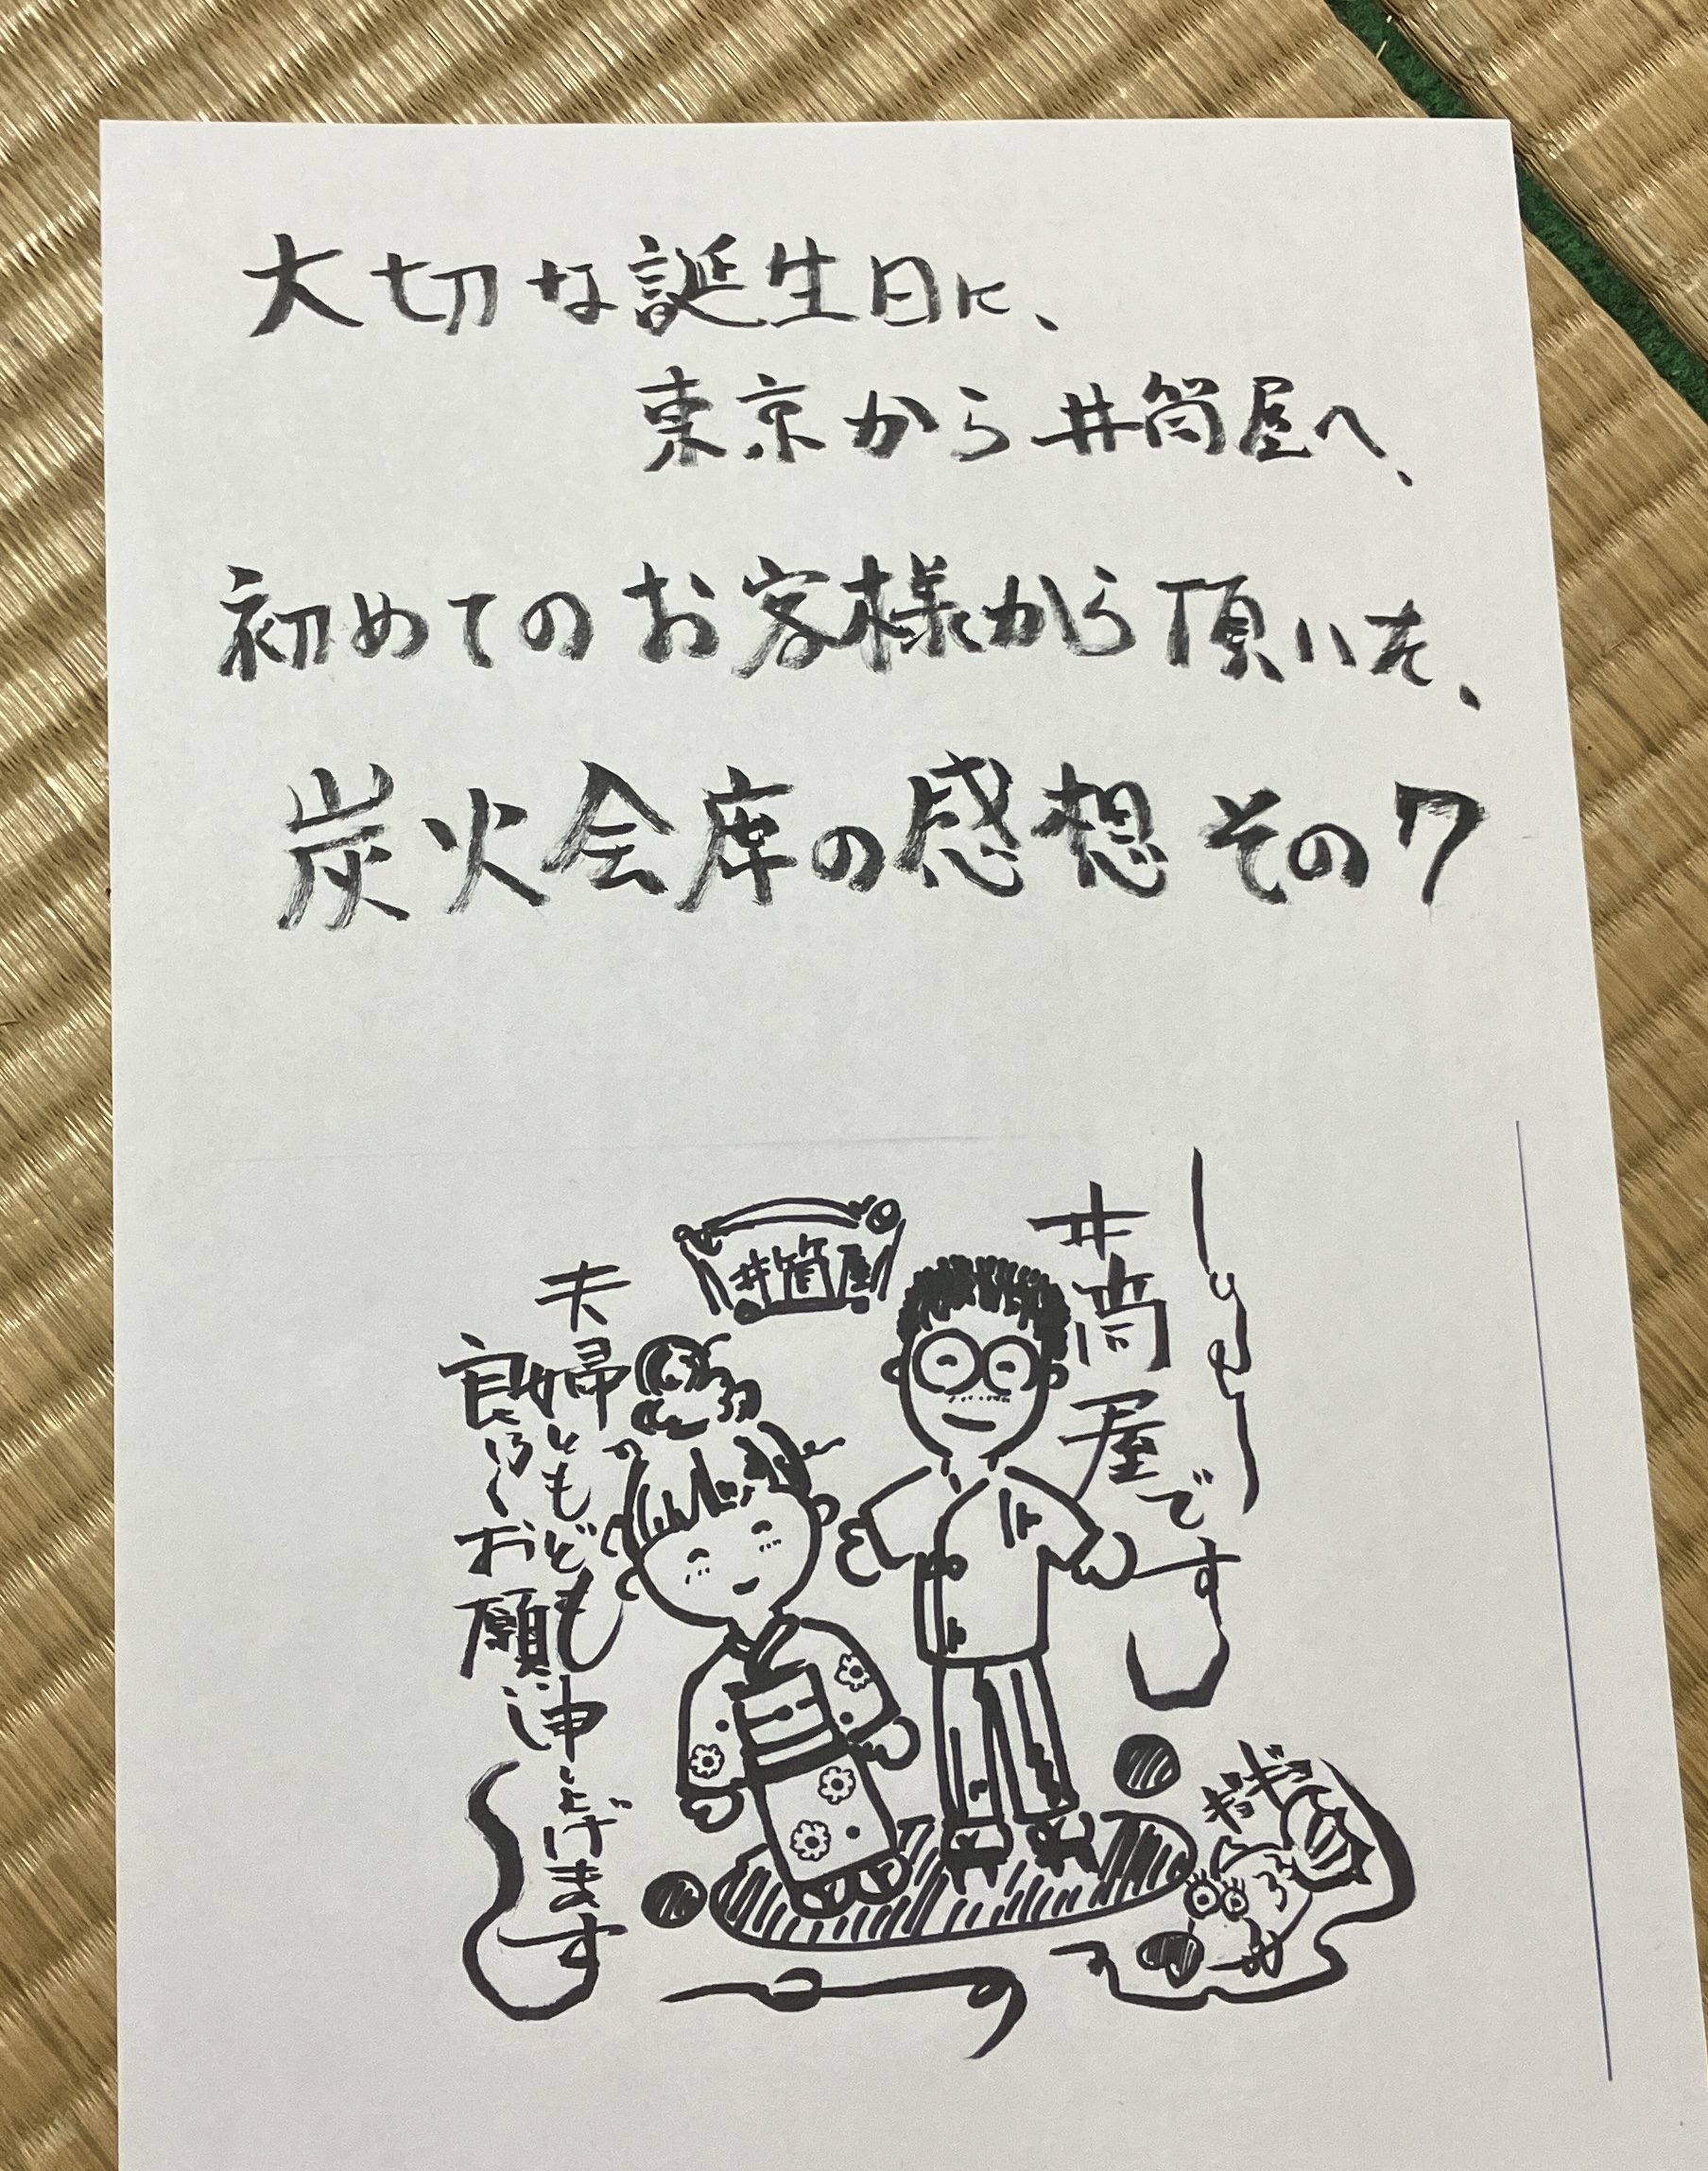 大切な誕生日に、
東京から井筒屋へ、
初めてのお客様から頂いた、
炭火会席の感想その7
井筒屋
井筒屋です
夫婦ともども
良ろしくお願い申し上げます
ギョギョ